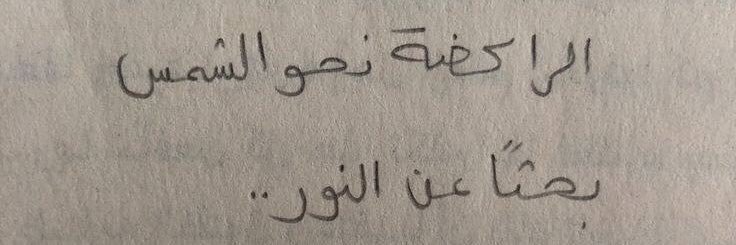 الراكضة نحو الشمس
بحثًا عن النور..